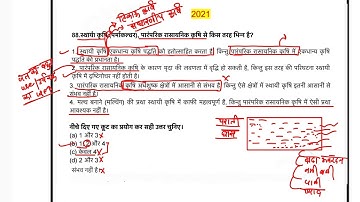 टिकाऊ कृषि
संधारणीय कृषि
2021
88.स्थायी कृषि (पर्माकल्चर), पारंपरिक रासायनिक कृषि से किस तरह भिन्न है?
1. स्थायी कृषि एकधान्य कृषि पद्धति को हतोत्साहित करता है, किन्तु पारंपरिक रासायनिक कृषि में एकधान्य कृषि
पद्धति की प्रधानता है।
2. पारंपरिक रासायनिक कृषि के कारण मृदा की लवणता में वृद्धि हो सकती है, किन्तु इस तरह की परिघटना स्थायी
कृषि में दृष्टिगोचर नहीं होती है।
3. पारंपरिक रासायनिक कृषि अर्धशुष्क क्षेत्रों में आसानी से संभव है, किन्तु ऐसे क्षेत्रों में स्थायी कृषि इतनी आसानी से
संभव नहीं है।
4. मल्च बनाने (मल्चिंग) की प्रथा स्थायी कृषि में काफी महत्वपूर्ण है, किन्तु पारंपरिक रासायनिक कृषि में ऐसी प्रथा
आवश्यक नहीं है।
नीचे दिए गए कूट का प्रयोग कर सही उत्तर चुनिए।
(a) 1 और 3
(b) 1, 2 और 4
(c) केवल 4
(d) 2 और 3
संभव नहीं है